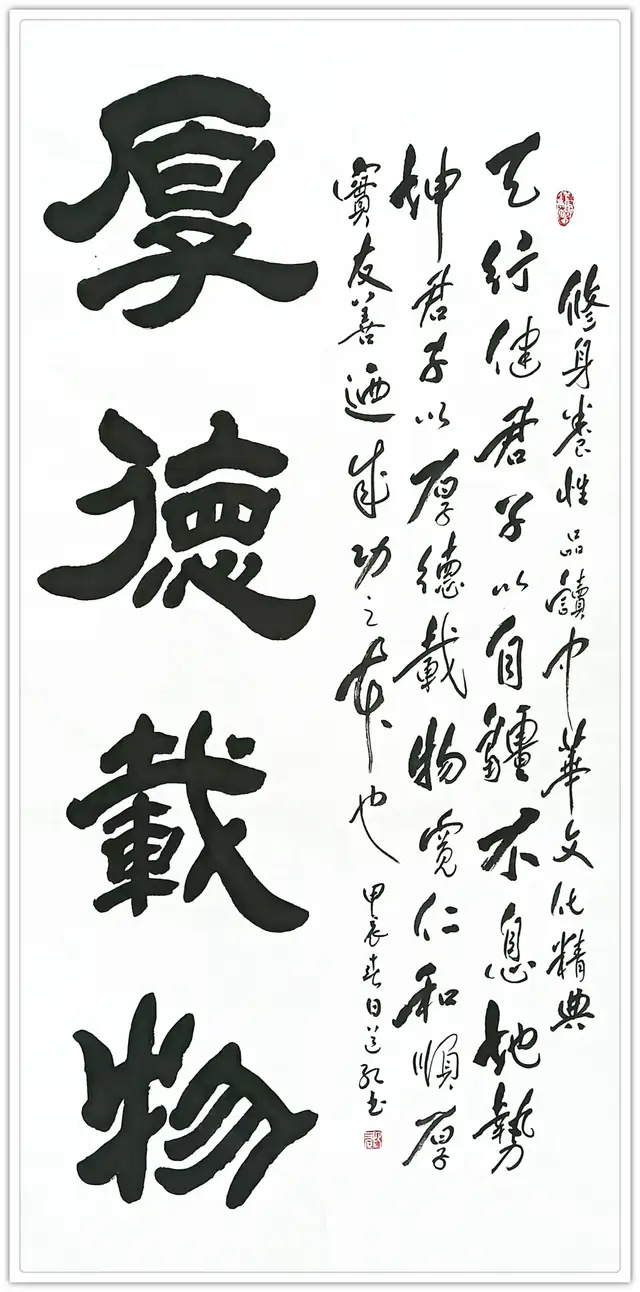 修身养性品讀中華文化精典
天行健君子以自疆不息地勢
坤君子以厚德載物寬仁和順厚
實友善迺成功之本也
甲辰春日道
書
厚德載物